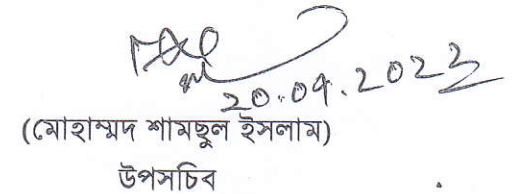 20.09.2022
(মোহাম্মদ শামছুল ইসলাম)
উপসচিব